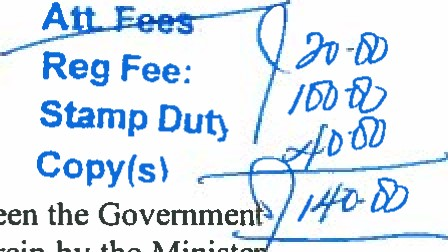 Att Fees
Reg Fee: 20-00
Stamp Duty 100-00
Copy(s) 40-00
140-00
een the Government
rein by the Minister